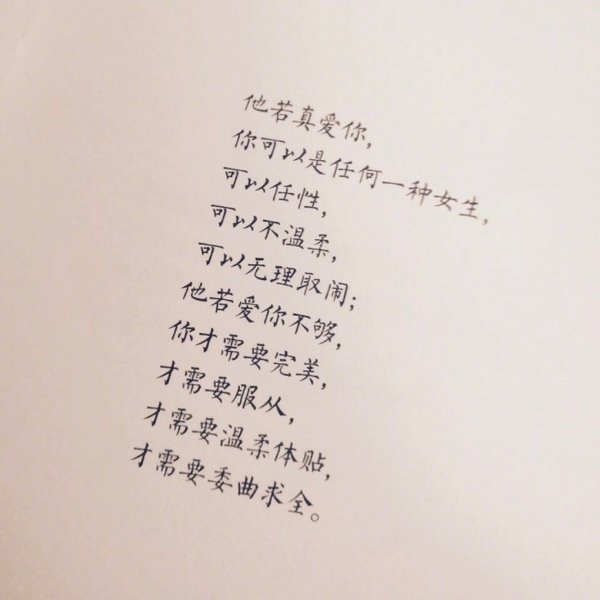 他若真爱你，
你可以是任何一种女生，
可以任性，
可以不温柔，
可以无理取闹；
他若爱你不够，
你才需要完美，
才需要服从，
才需要温柔体贴，
才需要委曲求全。